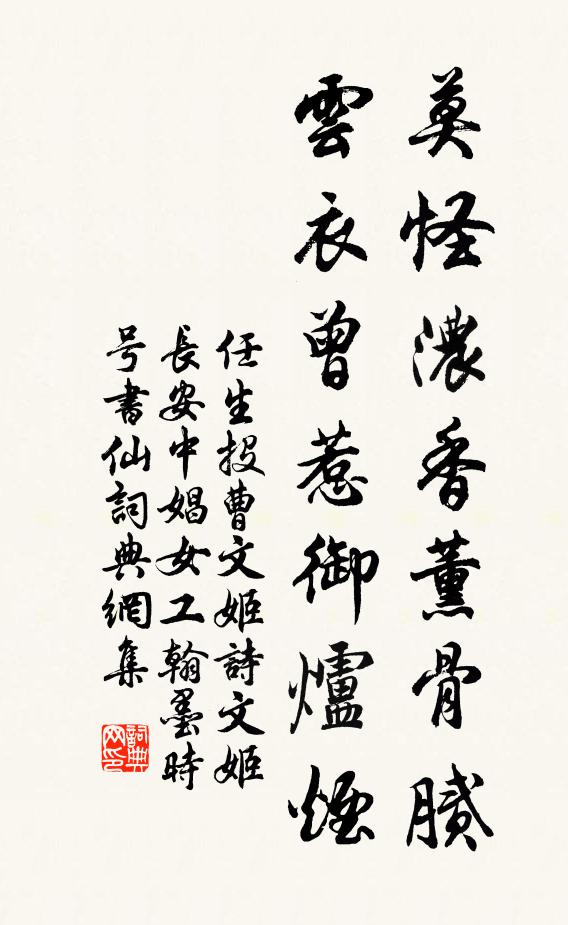 莫怪濃香薰骨膩
雲衣曾惹御爐煙
任生投曹文姬詩文姬
長安中娼女工翰墨時
号書仙詞典網集
詞典网印